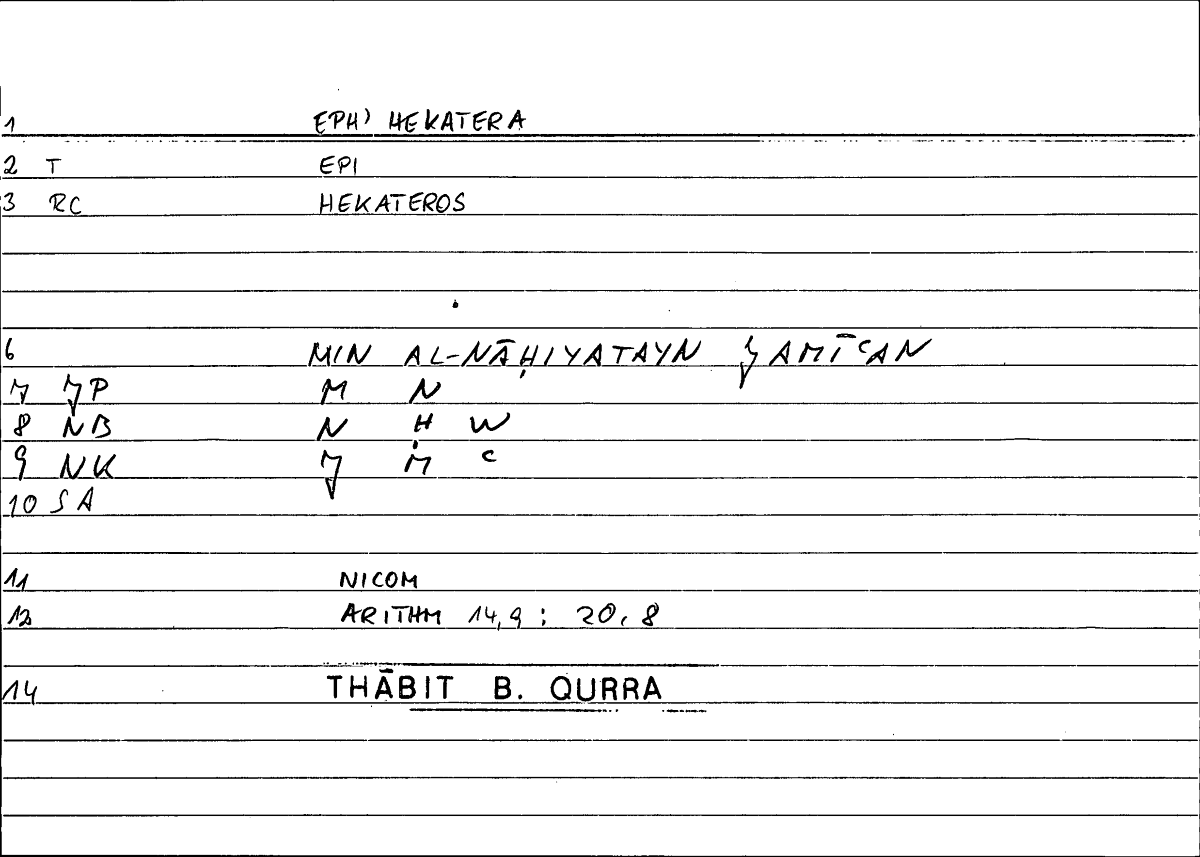 1 EPH' HEKATERA
2 T EPI
3 RC HEKATEROS
6 MIN AL-NĀḤIYATAYN ǦAMĪʿAN
7 JP M N
8 NB N Ḥ W
9 NK Ǧ M ʿ
10 SA
11 NICOM
12 ARITHM 14,9 : 20,8
14 THĀBIT B. QURRA